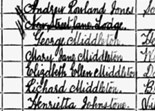 Andrew Garland Jones
George Middleton
Mary Jane Middleton
Elizabeth Ellen Middleton
Richard Middleton
Henrietta Johnstone